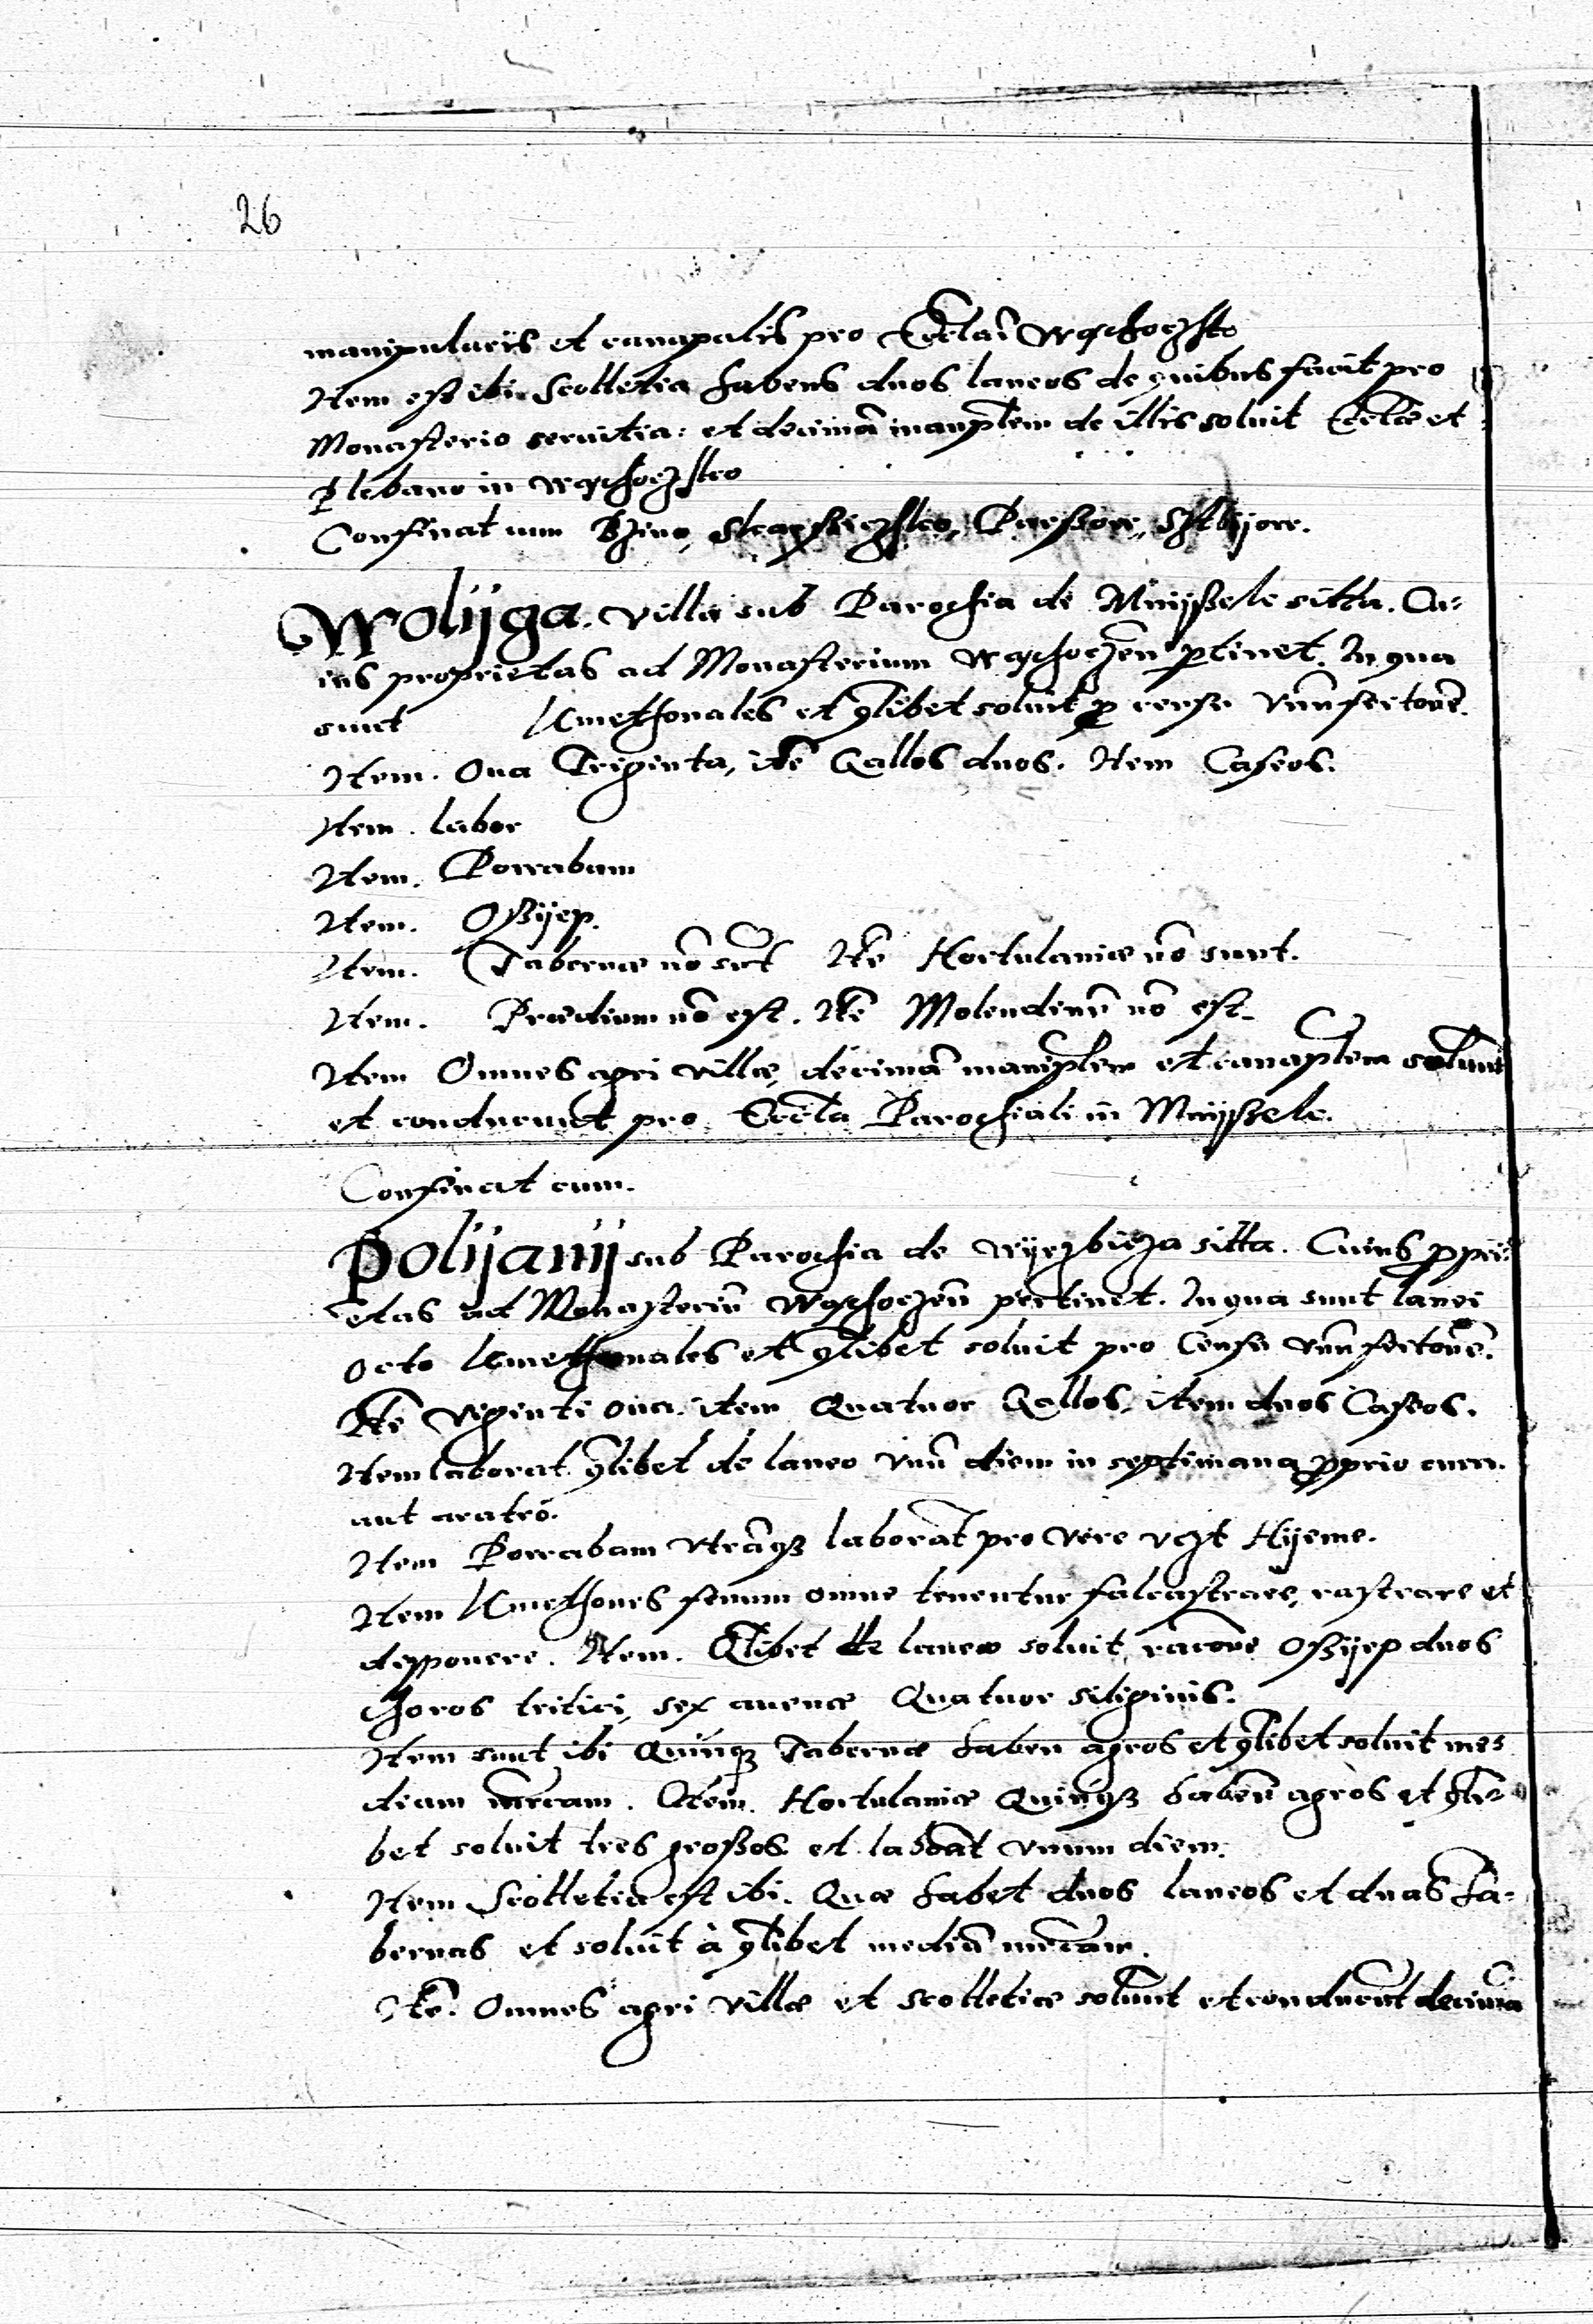 26
manipularis et canapalis pro Eccła in Wąchoczsko
Item est ibi Scolletia habens duos laneos de quibus facit pro
Monasterio seruitia: et decimā manipłem de illis soluit Ecclæ et
Plebano in Wąchoczsko
Confinat cum Bzino,
Wolijga. villa sub Parochia de Mnijßek sitta. Cu-
ius proprietas ad Monasterium Wąchoczen̄ ptinet. In qua
sunt Kmethonales et qłibet soluit p censu vnn̄ fertonē.
Item. Oua Triginta, itē Gallos duos. Item Caseos.
Item. Labor
Item. Powabam
Item. Oßijep.
Item. Tabernæ nō sūt Itē Hortulaniæ nō sunt.
Item. Prædium nō est. Itē Molendinū nō est.
Item Omnes agri villæ, decimā manipłem et canapłem soluunt
et conducunt pro Eccła Parochiali in Mnijßek.
Confinat cum.
Polijanij sub Parochia de Wijerzbicza sitta. Cuius ppri-
etas ad Monasteriū Wąchoczen̄ pertinet. In qua sunt lanei
octo Kmethonales et qłibet soluit pro Censu vnn̄ fertonē.
Itē viginti oua. item Quatuor Gallos, item duos Caseos.
Item laborat qłibet de laneo vnū diem in septimana pprio curru
aut aratro.
Item Powabam vtrāqȝ laborāt pro vere vczt Hijeme.
Item Kmethones fenum omne tenentur falcastrare, rastrare et
deponere. Item. Qłibet de laneo soluit racōne Oßijep duos
choros tritici, sex auenæ Quatuor siliginis.
Item sunt ibi Quinqȝ Tabernæ haben agros et qłibet soluit me-
diam mrcam. Item. Hortulaniæ Quinqȝ haben̄ agros et qłi-
bet soluit tres großos et laborāt vnum diem.
Item Scolletia est ibi. Quæ habet duos laneos et duas ta-
bernas et soluit à qłibet mediā mrcam.
Itē. Omnes agri villæ et scolletiæ soluūt et conducūt decimā